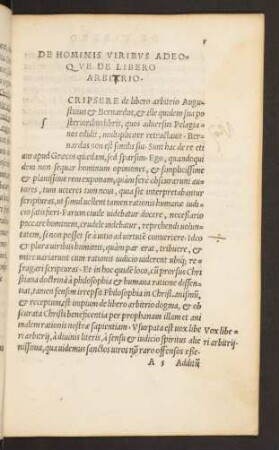 DE HOMINIS VIRIBVS ADEO-
QVE DE LIBERO
ARBITRIO.
CRIPSERE de libero arbitrio Augu-
stinus & Bernardus, & ille quidem sua po
s
sterioribus libris, quos aduersus Pelagia-
nos edidit, multipliciter retractauit. Ber-
nardus non est similis sui. Sunt hac de re eti
am apud Græcos quædam, sed sparsim. Ego, quandoqui
dem non sequar hominum opiniones, & simplicissime
& planissime rem exponam, quàm ferè obscurarunt au
tores, tum ueteres tum noui, quia sic interpretabantur
scripturas, ut simul uellent tamen rationis humanæ iudi
cio satisfieri. Parum ciuile uidebatur docere, necessario
peccare hominem, crudele uidebatur, reprehendi uolun-
tatem, si non posset se à uitio ad uirtutē conuertere. Ideo
& plura uiribus humanis, quàm par erat, tribuere, &
mire uariarunt cum rationis iudicio uiderent ubiq; re-
fragari scripturas. Et in hoc quidē loco, cū prorsus Chri
stiana doctrina à philosophia & humana ratione dissen-
tiat, tamen sensim irrepsit Philosophia in Christianismū,
& receptum est impium de libero arbitrio dogma, & ob
scurata Christi beneficentia per prophanam illam et ani
malem rationis nostræ sapientiam. Vsurpata est uox libe
Vox libe
ri arbitrij, à diuinis literis, à sensu & iudicio spiritus alie
ri arbitrij.
nissima, qua uidemus sanctos uiros nō raro offensos esse.
A 5
Additū